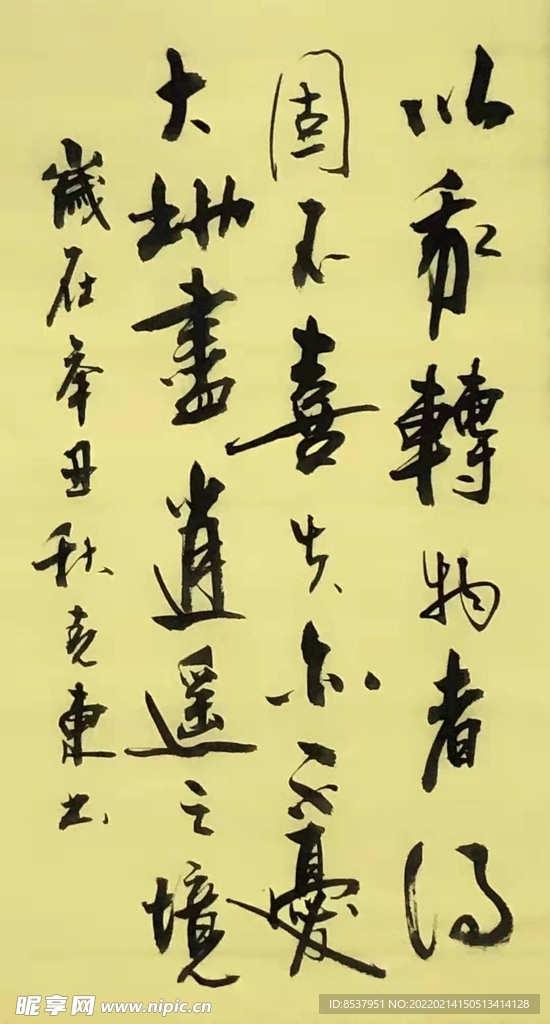 以我轉物者得
固不喜失亦不憂
大地盡逍遥之境
歲在辛丑秋克東书
昵享网 www.nipic.cn
ID:8537951 NO:20220214150513414128